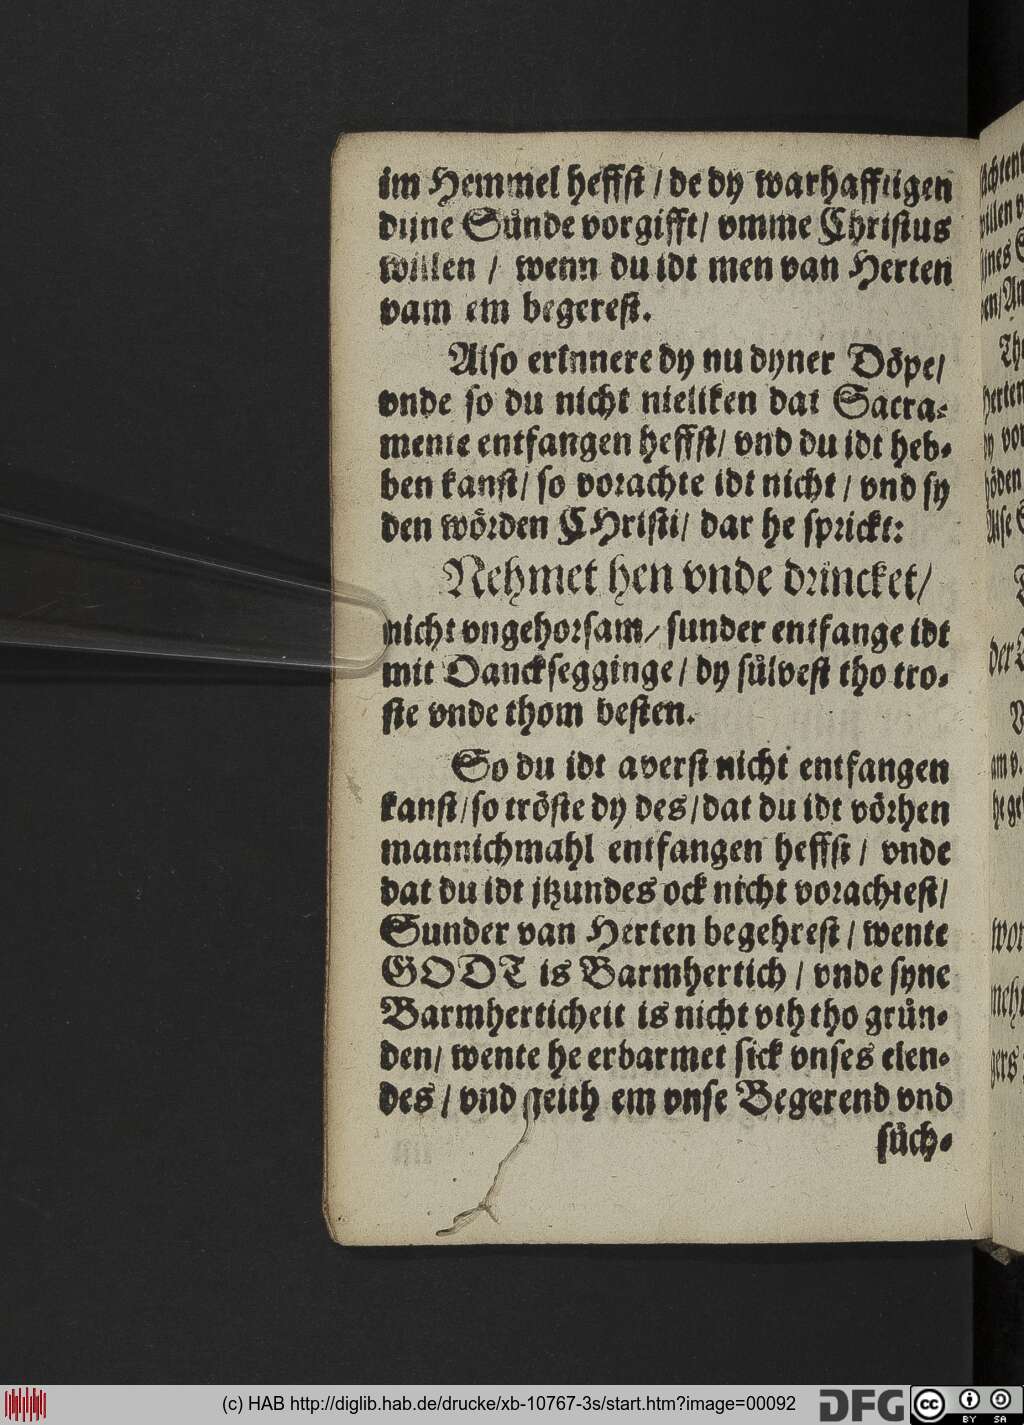 im Hemmel heffst / de dy warhafftigen
dyne Sünde vorgifft / vmme Christus
willen / wenn du idt men van Herten
vam em begerest.
Also erinnere dy nu dyner Döpe /
vnde so du nicht nieliken dat Sacra-
mente entfangen heffst / vnd du idt heb-
ben kanst / so vorachte idt nicht / vnd sy
den wörden CHristi / dar he sprickt:
Nehmet hen vnde drincket /
nicht vngehorsam / sunder entfange idt
mit Dancksegginge / dy sülvest tho tro-
ste vnde thom besten.
So du idt averst nicht entfangen
kanst / so tröste dy des / dat du idt vörhen
mannichmahl entfangen heffst / vnde
dat du idt jtzundes ock nicht vorachtest /
Sunder van Herten begehrest / wente
GODT is Barmhertich / vnde syne
Barmherticheit is nicht vth tho grün-
den / wente he erbarmet sick vnses elen-
des / vnd geith em vnse Begerend vnd
süch-
(c) HAB http://diglib.hab.de/drucke/xb-10767-3s/start.htm?image=00092
DFG
cc
BY SA